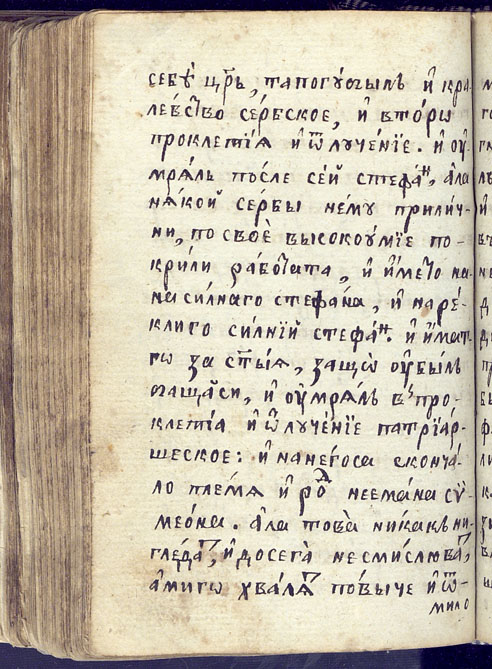 себѣ цр҃ь, та погꙋбилъ и҆ кра-
ле́вство се́рбское, и҆ вто́ры
проклетїѧ и҆ ѿлꙋче́нїе. и҆ ᲂу҆-
мрѧлъ по́сле се́й стефа́н, а҆ла
нѧ́кой се́рбы не́мꙋ прили́ч-
ни, по своѐ высокоꙋ́мїе по-
кри́ли рабо́тата, и҆ и҆́мето на
на си́лнаго стефа́на, и҆ наре́-
кли го си́лнїй стефа́н. и҆ и҆́мат-
гѡ за ст҃ы́ѧ, защѡ̀ ᲂу҆бы́лъ
ѻ҆таща си, и҆ ᲂу҆мрѧ́лъ въ про-
клетїа и҆ ѿлꙋче́нїе патрїа́р-
шеское: и҆ на него са сконча́-
ло пле́мѧ и҆ ро́д неема́на сѵ-
мео́на. а҆ла това̀ ника́къ ни-
гле́дат, и҆ досега̀ не сми́слюват,
а҆ми гѡ хва́лѧт по́выче и҆ ѿ
мило